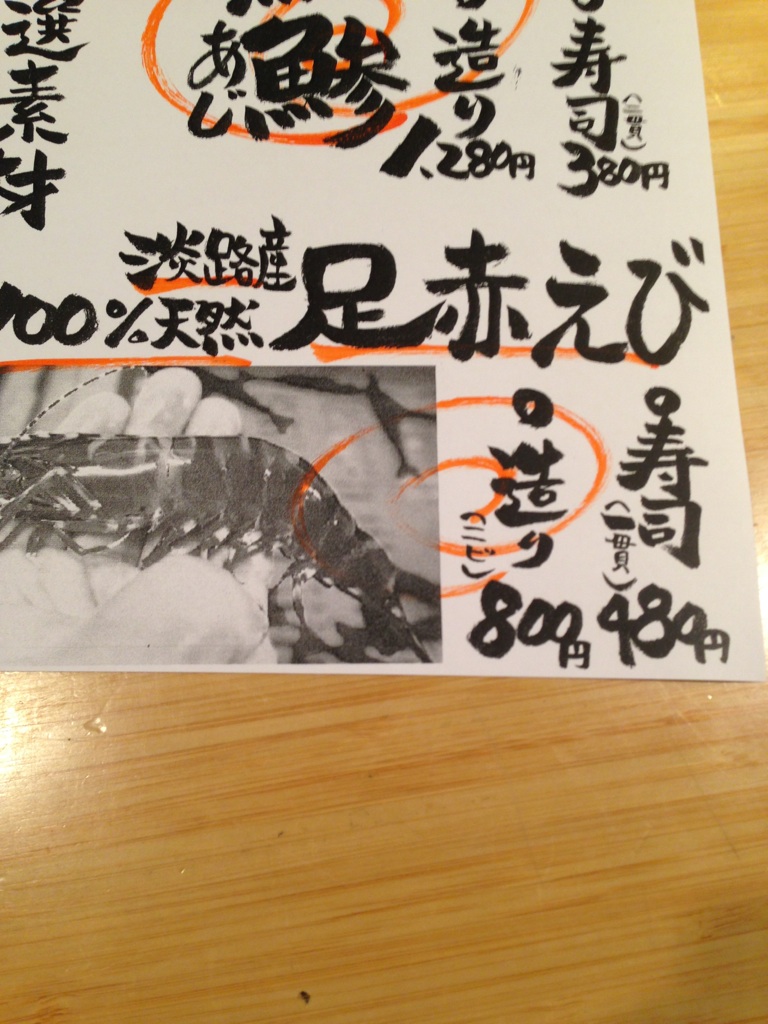 寿司
(二貫)
380円
造り
1,280円
鯵
あじ
選素材
淡路産
100%天然
足赤えび
寿司
(一貫)
480円
造り
(二ピ)
800円